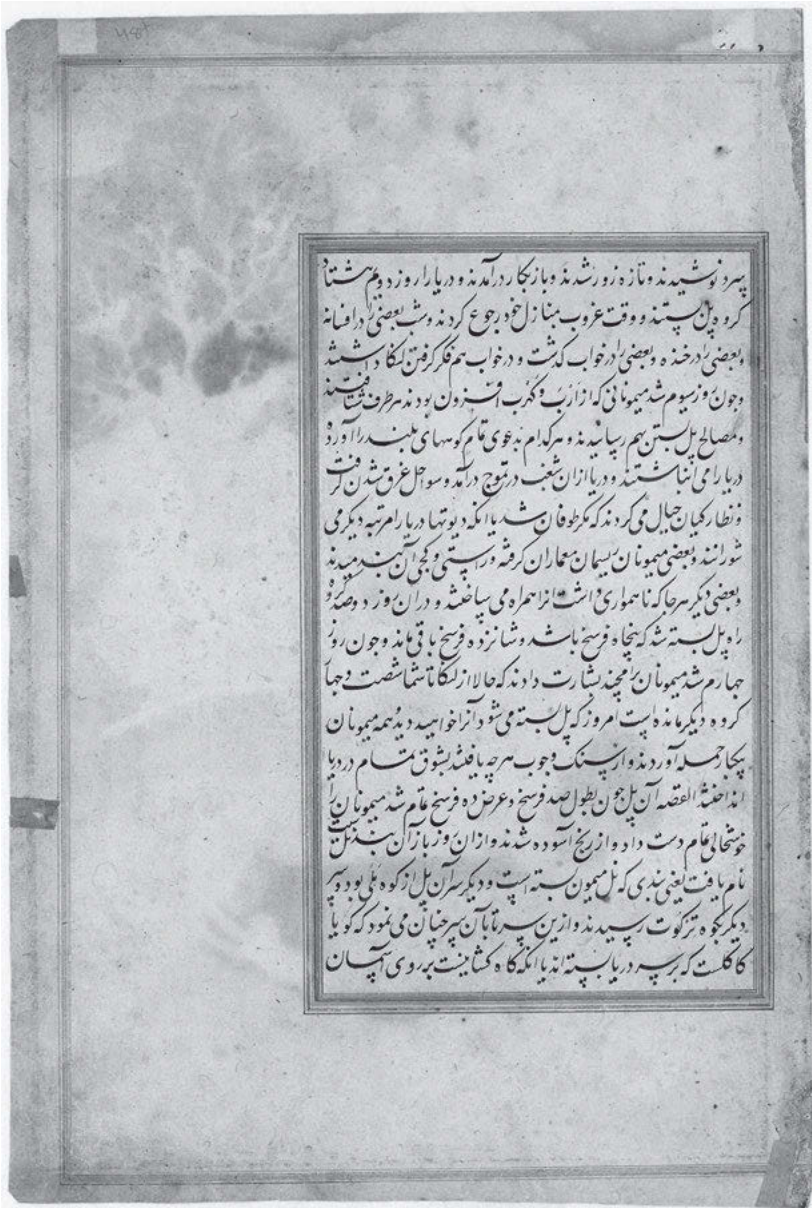 سرد نوشیدند و تازه زور شدند و باز بکار درآمدند و دریا را روز دویم هشتاد
کروه پل بستند و وقت غروب بمنازل خود رجوع کردند و شب بعضی را در افسانه
و بعضی را در خنده و بعضی را در خواب گذشت و در خواب هم فکر گرفتن لنکا داشتند
و چون روز سیوم شد میمونانی که از ارب و کهرب افزون بودند هر طرف شتافتند
و مصالح پل بستن بهم رسانیدند و هر کدام بدعوی تمام کوههای بلند را آورده
دریا را می انباشتند و دریا ازان شعف در تموج درآمد و سواحل غرق شدن گرفت
و نظارکیان خیال می کردند که مکر طوفان شد یا انکه دیوتها دریا را مرتبه دیگر می
شورانند و بعضی میمونان ریسمان معماران گرفته و راستی و کجی آن بند میدیدند
و بعضی دیگر هر جا که ناهمواری داشت انرا همراه می ساختند و دران روز دو صد کروه
راه پل بسته شد که پنجاه فرسخ باشد و شانزده فرسخ باقی ماند و چون روز
چهارم شد میمونان رامچند بشارت دادند که حالا از لنکا تا شما شصت و چهار
کروه دیگر مانده است امروز که پل بسته می شود آنرا خواهید دید همه میمونان
بیکبار حمله آوردند و از سنک و چوب هر چه یافتند بشوق تمام در دریا
انداختند القصه آن پل چون بطول صد فرسخ و عرض ده فرسخ تمام شد میمونان را
خوشحالی تمام دست داد و از رنج آسوده شدند و ازان روز باز آن بند نل
نام یافت یعنی بندی که نل میمون بسته است و دیگر سر آن پل از کوه ملی بود و سر
دیگر بکوه ترکوت رسیدند و ازین سر تا بآن سر چنان می نمود که گویا
کاکلست که بر سر دریا بسته اند یا انکه کاه کشانیست بر روی آسمان